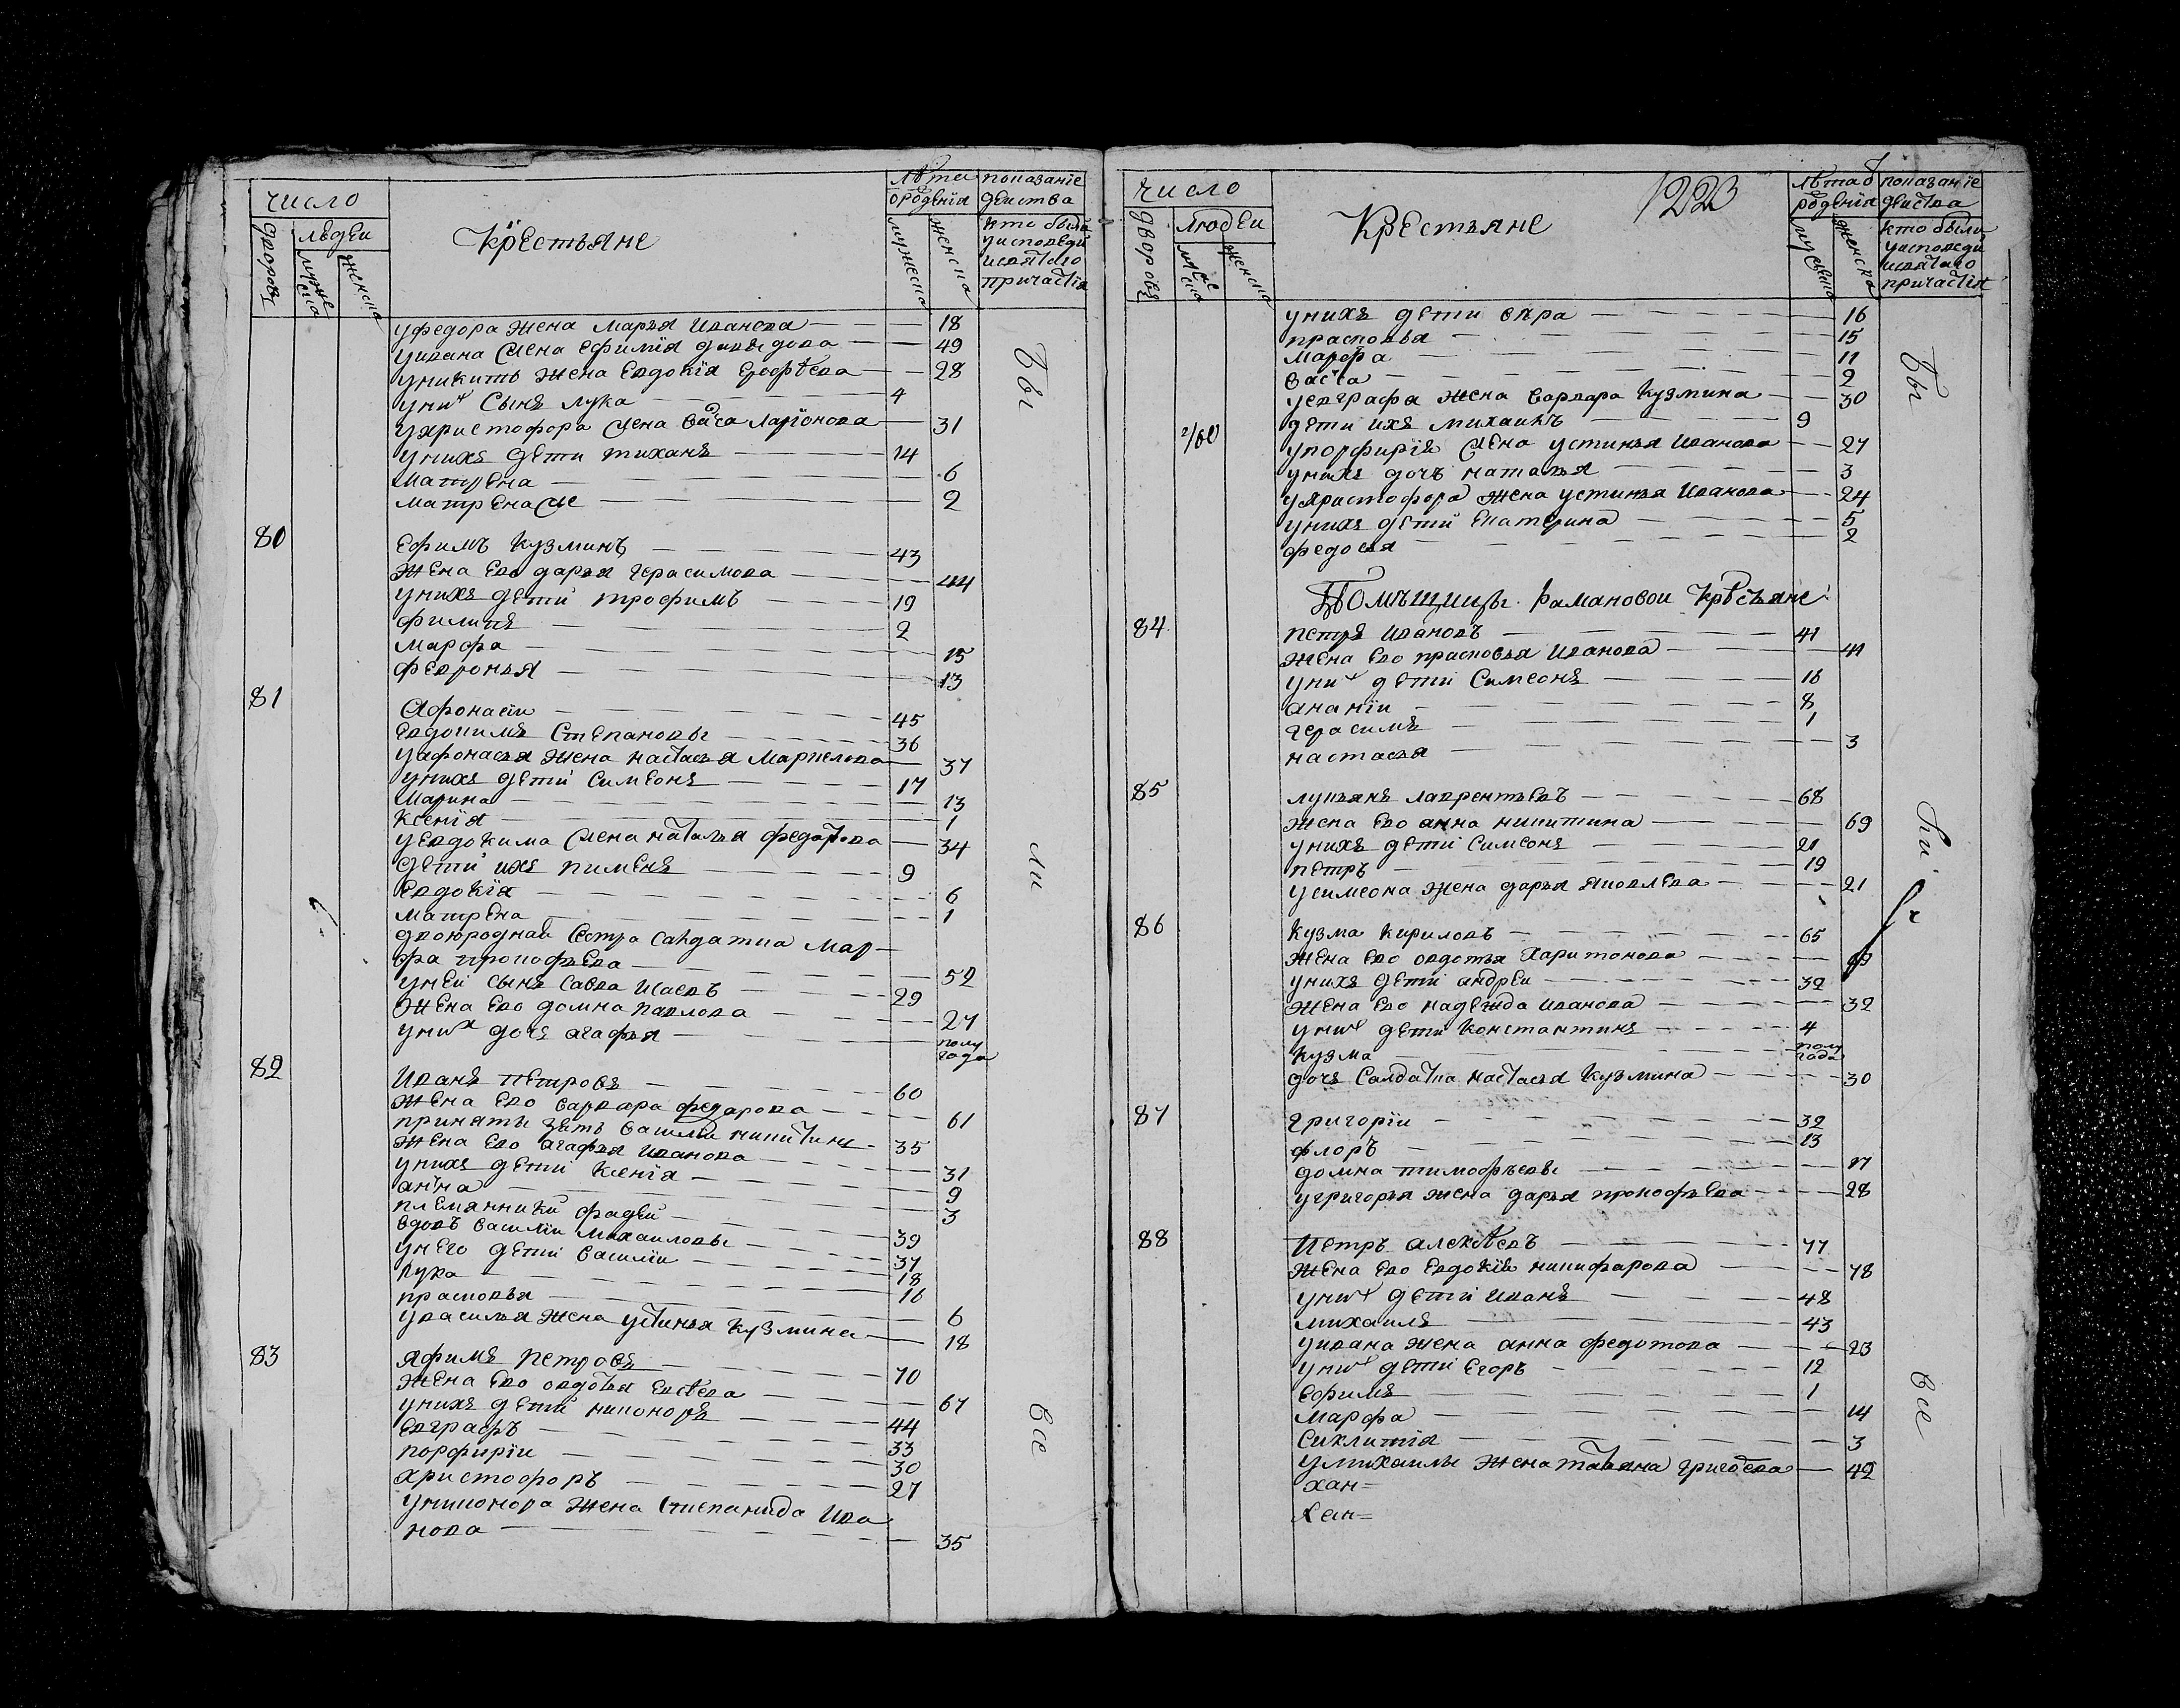 число
дворовъ
людеи
мужеска
женска
Крестьяне
лѣта
о рождения
мужеска
женска
показание
деиства
кто были
у исповеди
и святаго
причастия
у федора жена марья Иванова — 18
у ивана жена ефимїя давыдова — 49
у никиты жена Евдокїя Ерофѣева — 28
у них Сынъ лука — 4
у христофора жена васса Ларїонова — 31
у нихъ дети тиханъ — 14
матрена — 6
матрена же — 2
80
Ефимъ Кузминъ — 43
жена Ево дарья герасимова — 44
у нихъ дети трофимъ — 19
филипъ — 2
марфа — 15
февронья — 13
81
Афонасїи — 45
Евдокимъ Степановы — 36
у афонасья жена настасья Маркелова — 37
у нихъ дети Симеонъ — 17
Марина — 13
Ксенїя — 1
у евдокима жена наталья федотова — 34
дети ихъ пименъ — 9
Евдокїя — 6
матрена — 1
двоюродная Сестра Салдатка мар-
фа прокофьева — 52
у неи сынъ Савва Исаевъ — 29
жена Ево домна павлова — 27
у них дочь агафья — полу
года
82
Иванъ петровъ — 60
жена Ево варвара федарова — 61
приняты зять василїи никитинъ — 35
жена Ево агафья Иванова — 31
у нихъ дети Ксенїя — 9
анна — 3
племянники фадеи — 39
вдовъ василїи михаиловы — 37
у него дети василїи — 18
лука — 16
прасковья — 6
у василья жена устинья кузмина — 18
83
Яфимъ петровъ — 70
жена Ево овдотья Евсѣева — 67
у нихъ дети никоноръ — 44
Евграфъ — 33
порфирїи — 30
христофоръ — 27
у никонора жена степанида Ива
нова — 35
Бы
ли
все
число
дворовъ
людеи
мужеска
женска
Крестьяне
1223
лѣта о
рождения
мужеска
женска
показанїе
деиства
кто были
у исповеди
и святаго
причастїя
у нихъ дети вѣра — 16
прасковья — 15
марфа — 11
васса — 2
у евграфа жена варвара Кузмина — 30
дети ихъ михаилъ — 9
у порфирїя жена устинья Иванова — 27
у нихъ дочь наталья — 3
у христофора жена устинья Иванова — 24
у нихъ дети Екатерина — 5
федосья — 2
Помѣщицы Рамановои Крестьяне
84
петръ Ивановъ — 41
жена Ево прасковья Иванова — 41
у них дети Симеонъ — 18
ананїи — 8
герасимъ — 1
настасья — 3
85
лукьянъ лаврентьевъ — 68
жена Ево анна никитина — 69
у нихъ дети Симеонъ — 21
петръ — 19
у симеона жена дарья яковлева — 21
86
Кузма Кириловъ — 65
жена Ево овдотья Харитонова
у нихъ дети андреи — 32
жена Ево надежда Иванова — 32
у них дети Константинъ — 4
Кузма — полу
года
дочь Салдатка настасья Кузмина — 30
87
григорїи — 32
флоръ — 13
домна тимофѣевы — 17
у григорья жена дарья прокофьева — 28
88
Петръ алексѣевъ — 77
жена Ево Евдокїя никифарова — 78
у них дети Иванъ — 48
михаилъ — 43
у ивана жена анна федотова — 23
у них дети Егоръ — 12
Ефимъ — 1
марфа — 14
Сиклитїя — 3
у михаилы жена татьяна григорева — 42
хан=
хан=
Бы
ли
все